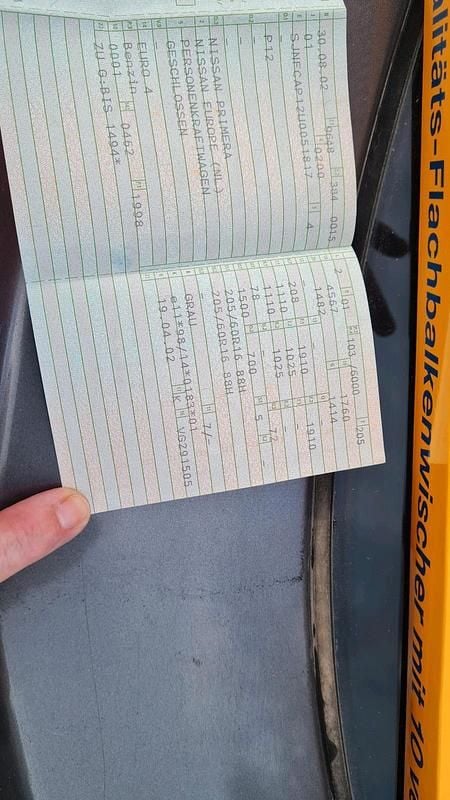 30.08.02 0648 304 0015
01 0200
SJNFCAP12U0051817 4
-
P12
-
-
NISSAN PRIMERA
NISSAN EUROPE (NL)
PERSONENKRAFTWAGEN
GESCHLOSSEN
EURO 4
Benzin 0462
0001 1998
ZU G:BIS 1494*
2 01 103 /6000 205
4567 1760
1482 1414
- 1910 1910
208 1025 -
1110 1025 72
1110 700 -
78 5
1500
205/60R16 88H
205/60R16 88H
- 7/-
GRAU
e11*98/14*0183*01
19.04.02 K VG291505
alitäts-Flachbalkenwischer mit 10